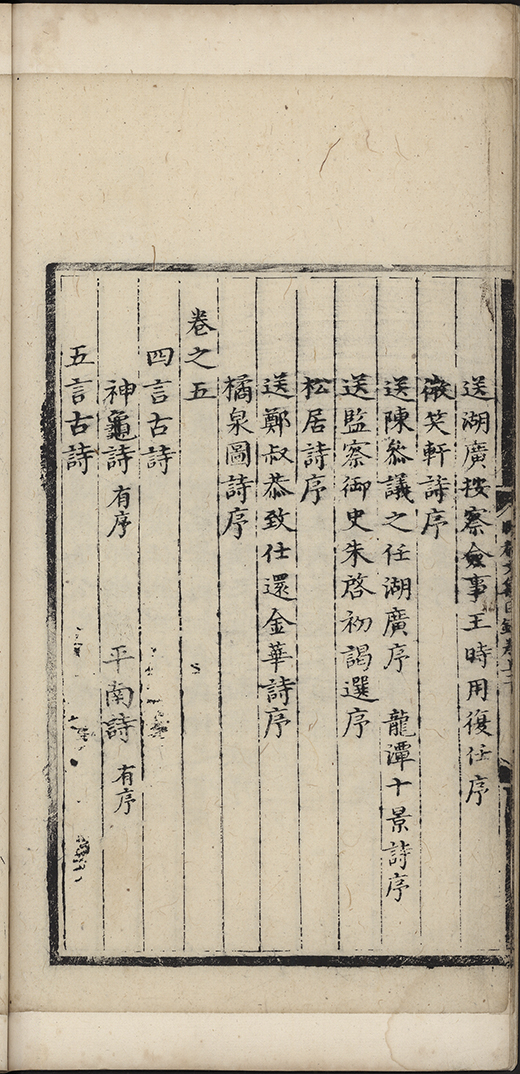 送湖廣按察僉事王時用復任序
微笑軒詩序
送陳叅議之任湖廣序　龍潭十景詩序
送監察御史朱啓初謁選序
松居詩序
送鄭叔恭致仕還金華詩序
橘泉圖詩序
卷之五
四言古詩
神龜詩有序　平南詩有序
五言古詩